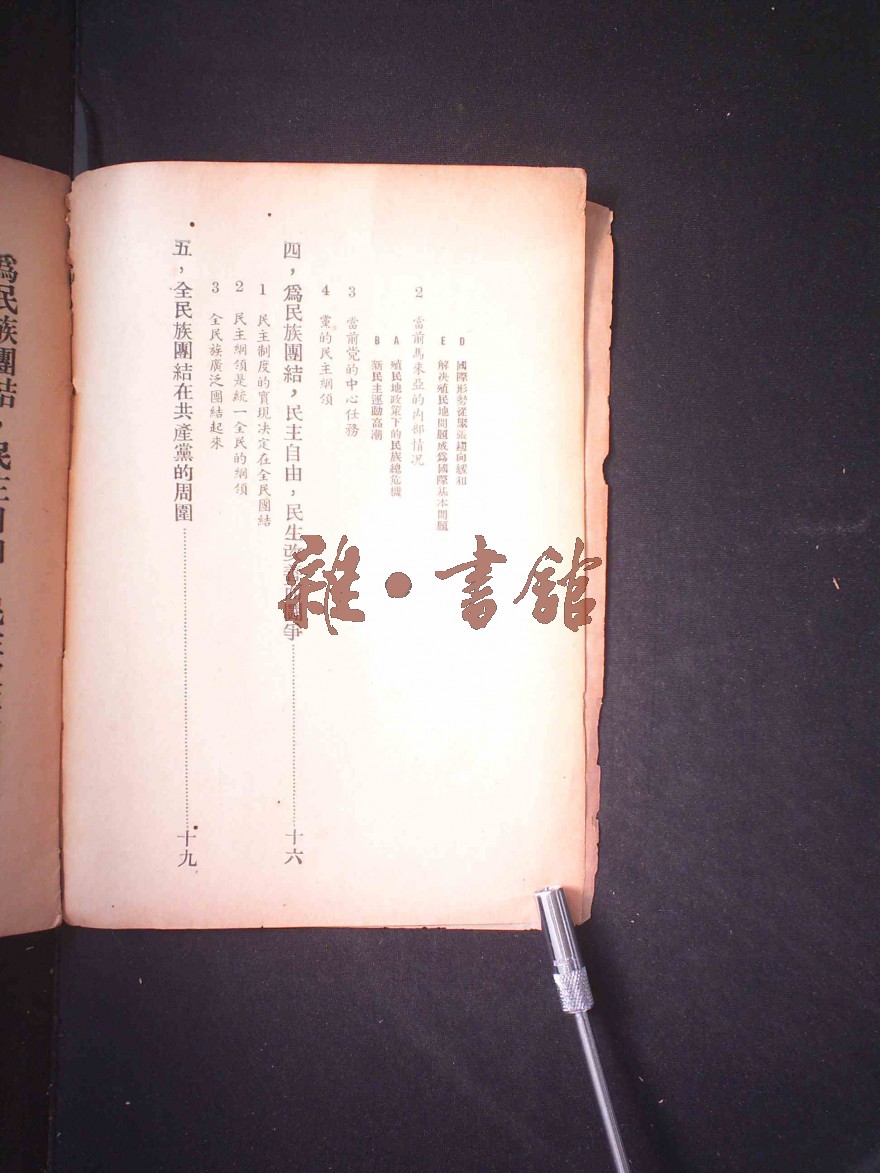 D 國際形勢從緊張趨向緩和
E 解決殖民地問題成爲國際基本問題
2 當前馬來亞的內部情况
A 殖民地政策下的民族總危機
B 新民主運動高潮
3 當前党的中心任務
4 黨的民主綱領
四，爲民族團結，民主自由，民生改善而鬬爭 十六
1 民主制度的實現决定在全民團結
2 民主綱領是統一全民的綱領
3 全民族廣泛團結起來
五，全民族團結在共產黨的周圍 十九
爲民族團結，民主自由
雜·書館